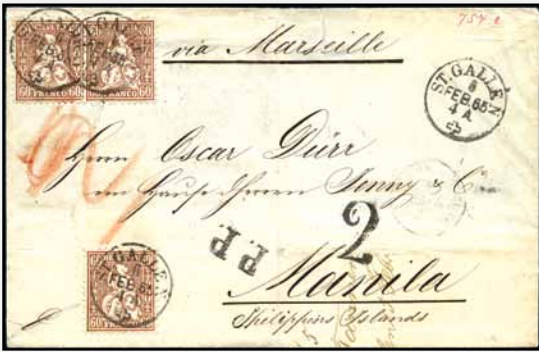 757.e
via Marseille
ST. GALLEN
6
FEB. 65
4 A.
60 FRANCO 60
60 FRANCO 60
Herrn Oscar Dürr
im Hause Herren Jenny & Co
P.P.
2
ST. GALLEN
6
FEB. 65
4 A.
60 FRANCO 60
Manila
Philippins Islands